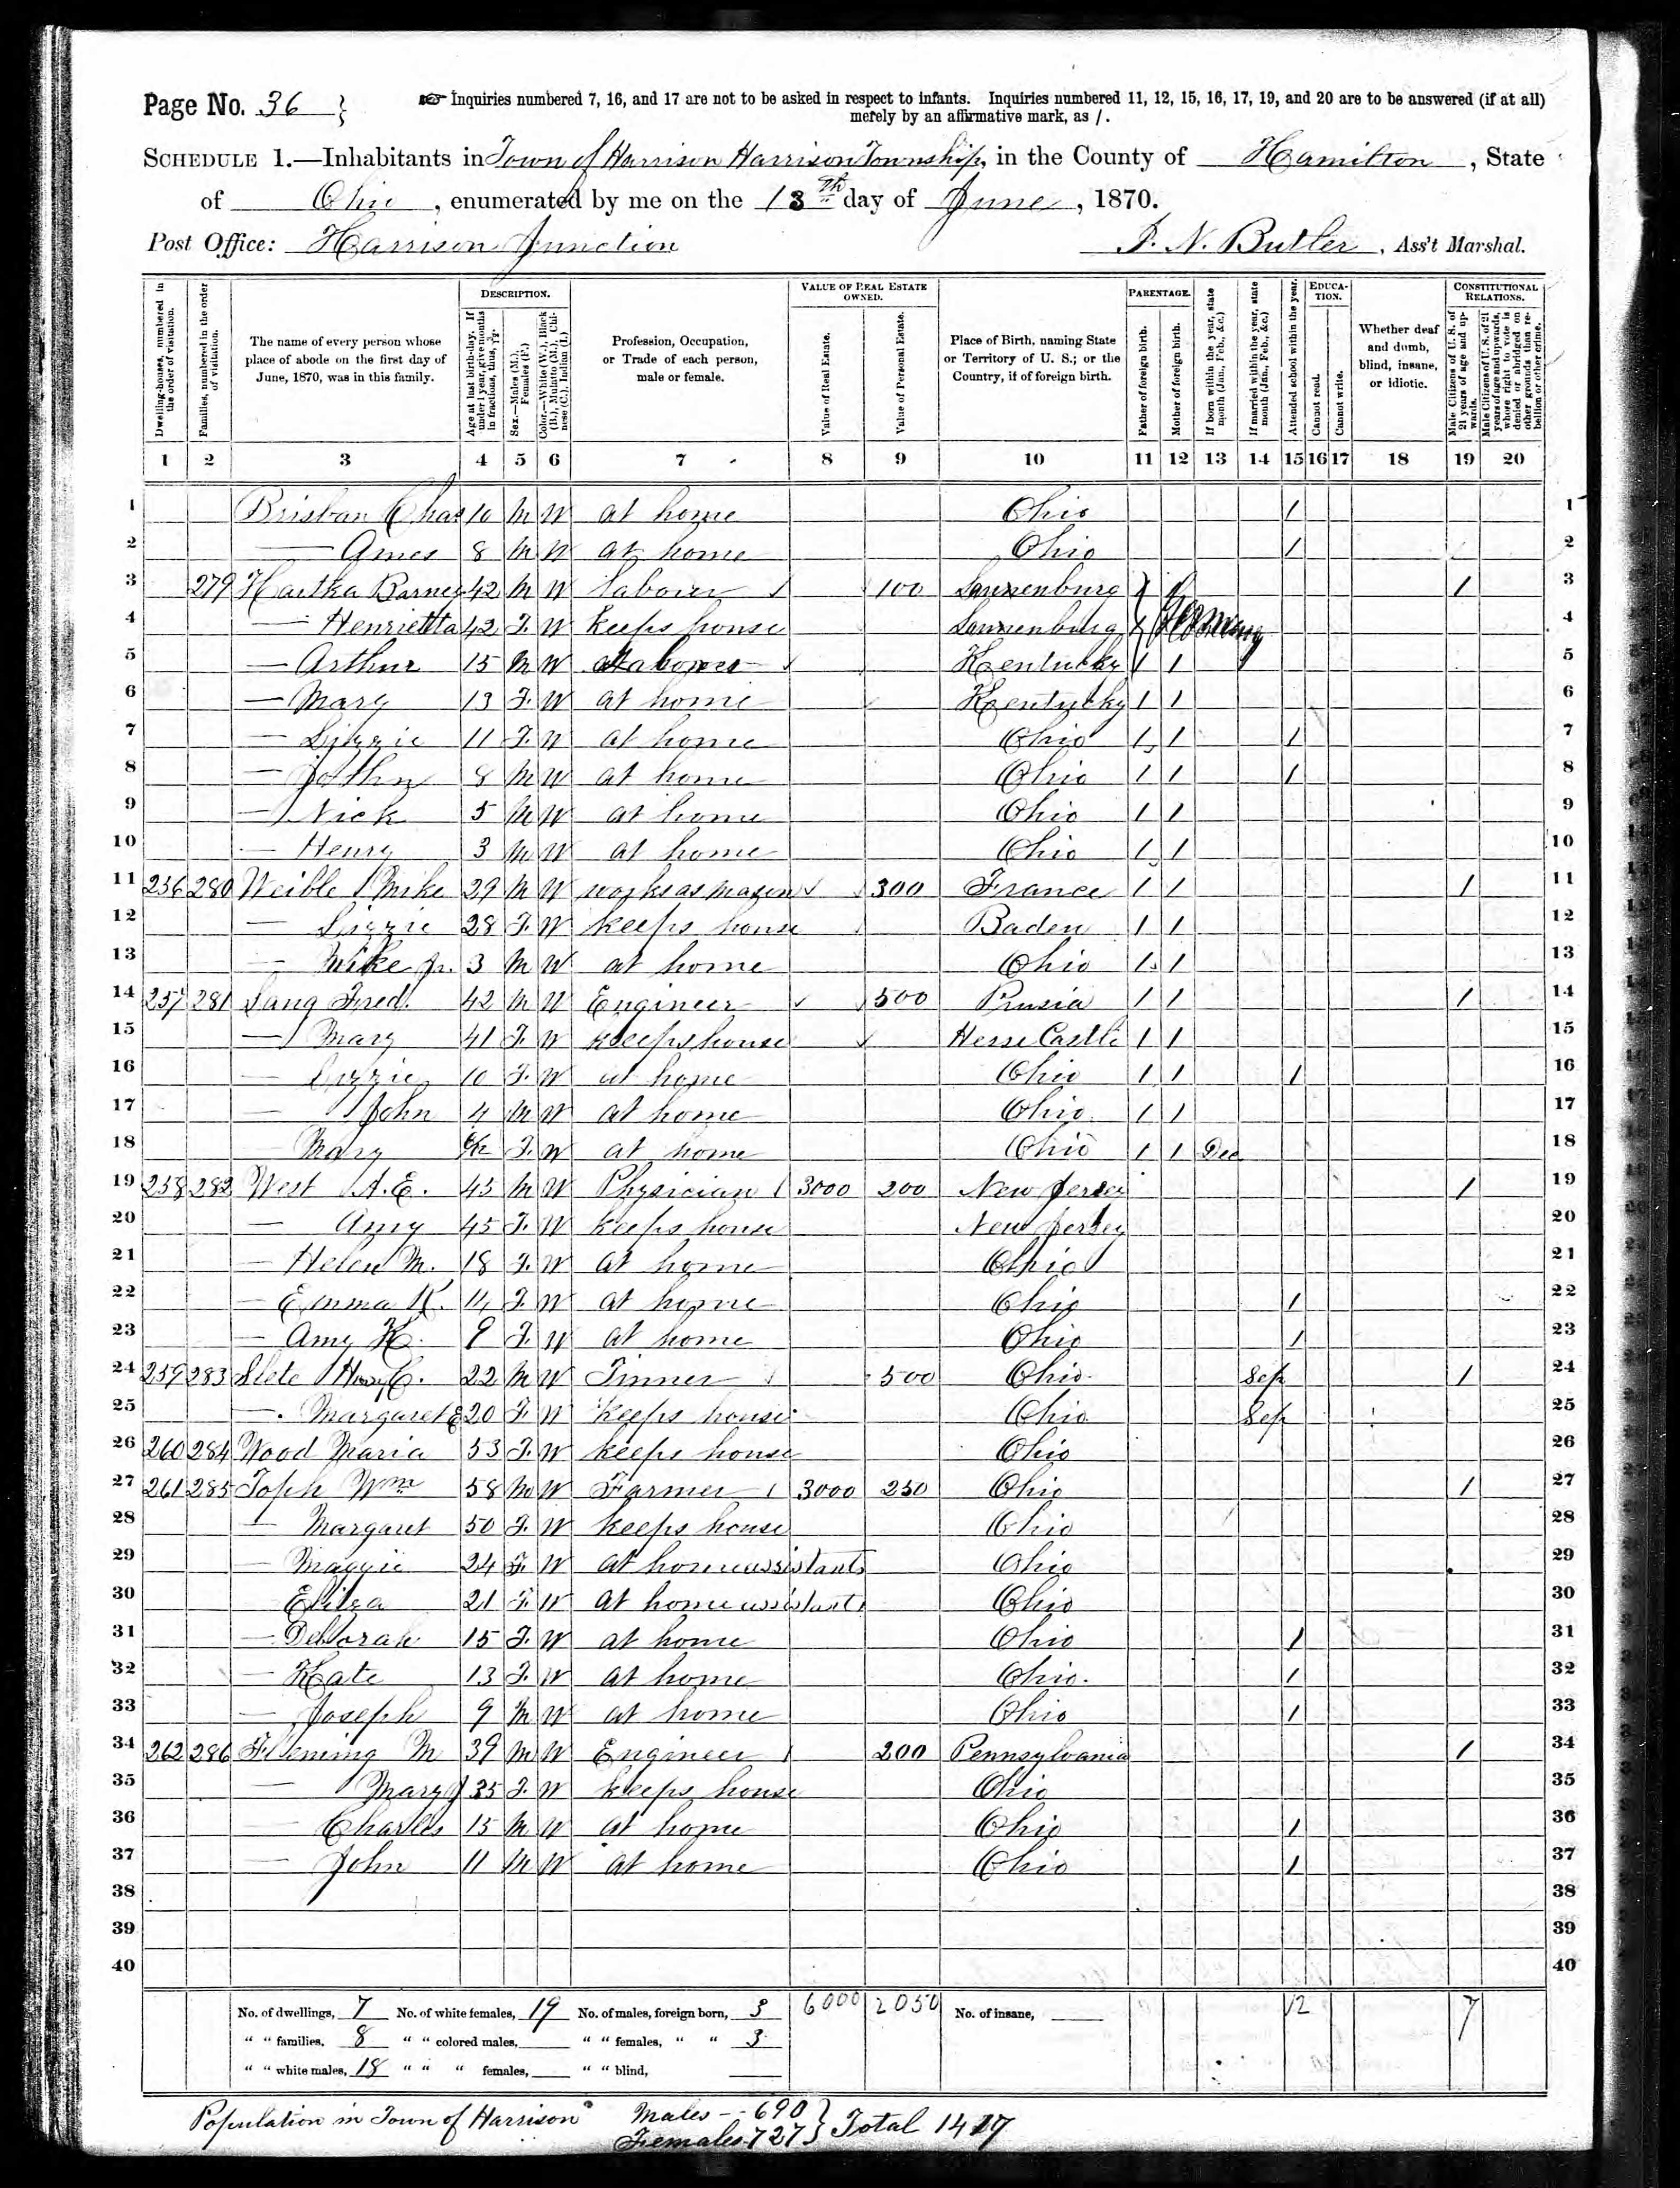 Page No. 36 }
☞ Inquiries numbered 7, 16, and 17 are not to be asked in respect to infants. Inquiries numbered 11, 12, 15, 16, 17, 19, and 20 are to be answered (if at all)
merely by an affirmative mark, as /.
SCHEDULE 1.—Inhabitants in Town of Harrison Harrison Township, in the County of Hamilton, State
of Ohio, enumerated by me on the 13th day of June, 1870.
Post Office: Harrison Junction
J. N. Butler, Ass't Marshal.
Dwelling-houses, numbered in the order of visitation.
Families, numbered in the order of visitation.
The name of every person whose place of abode on the first day of June, 1870, was in this family.
DESCRIPTION.
Age at last birth-day. If under 1 year, give months in fractions, thus, 3/12.
Sex.—Males (M.), Females (F.)
Color.—White (W.), Black (B.), Mulatto (M.), Chinese (C.), Indian (I.)
Profession, Occupation, or Trade of each person, male or female.
VALUE OF REAL ESTATE OWNED.
Value of Real Estate.
Value of Personal Estate.
Place of Birth, naming State or Territory of U. S.; or the Country, if of foreign birth.
PARENTAGE.
Father of foreign birth.
Mother of foreign birth.
If born within the year, state month (Jan., Feb., &c.)
If married within the year, state month (Jan., Feb., &c.)
Attended school within the year.
EDUCATION.
Cannot read.
Cannot write.
Whether deaf and dumb, blind, insane, or idiotic.
CONSTITUTIONAL RELATIONS.
Male Citizens of U. S. of 21 years of age and upwards.
Male Citizens of U. S. of 21 years of age and upwards, whose right to vote is denied or abridged on other grounds than rebellion or other crime.
1 2 3 4 5 6 7 8 9 10 11 12 13 14 15 16 17 18 19 20
1 Brisban Chas 10 M W at home Ohio / 1
2 — Ames 8 M W at home Ohio / 2
3 279 Hartka Barney 42 M W Laborer 100 / 3
4 — Henrietta 42 F W Keeps house Germany 4
5 — Arthur 15 M W Kentucky / / 5
6 — Mary 13 F W at home Kentucky / / 6
7 — Lizzie 11 F W at home Ohio / / / 7
8 — John 8 M W at home Ohio / / / 8
9 — Nick 5 M W at home Ohio / / 9
10 — Henry 3 M W at home Ohio / / 10
11 256 280 Weible Mike 29 M W works as mason 300 France / / / 11
12 — Lizzie 28 F W keeps house Baden / / 12
13 — Mike Jr. 3 M W at home Ohio / / 13
14 257 281 Lang Fred. 42 M W Engineer 500 Prusia / / / 14
15 — Mary 41 F W keeps house Hesse Castle / / 15
16 — Lizzie 10 F W at home Ohio / / / 16
17 — John 4 M W at home Ohio / / 17
18 — Mary 6/12 F W at home Ohio / / Dec 18
19 258 282 West A. E. 45 M W Physician 3000 200 New Jersey / 19
20 — Amy 45 F W keeps house New Jersey 20
21 — Helen M. 18 F W at home Ohio 21
22 — Emma K. 14 F W at home Ohio / 22
23 — Amy K. 9 F W at home Ohio / 23
24 259 283 Slete C. 22 M W Tinner 500 Ohio Sep / 24
25 — Margaret E 20 F W Keeps house Ohio Sep 25
26 260 284 Wood Maria 53 F W keeps house Ohio 26
27 261 285 Toph Wm 58 M W Farmer 3000 250 Ohio / 27
28 — Margaret 50 F W keeps house Ohio 28
29 — Maggie 24 F W at home assistant Ohio 29
30 Eliza 21 F W at home assistant Ohio 30
31 — Deborah 15 F W at home Ohio / 31
32 — Kate 13 F W at home Ohio / 32
33 — Joseph 9 M W at home Ohio / 33
34 262 286 Fleming M 39 M W Engineer 200 Pennsylvania / 34
35 — Mary J 35 F W keeps house Ohio 35
36 — Charles 15 M W at home Ohio / 36
37 — John 11 M W at home Ohio / 37
38 38
39 39
40 40
No. of dwellings, 7 No. of white females, 19 No. of males, foreign born, 3 6000 2050 No. of insane, 12 7
" " families, 8 " " colored males, " " females, " " 3
" " white males, 18 " " " females, " " blind,
Population in Town of Harrison Males -- 690 } Total 1417
Females 727 }